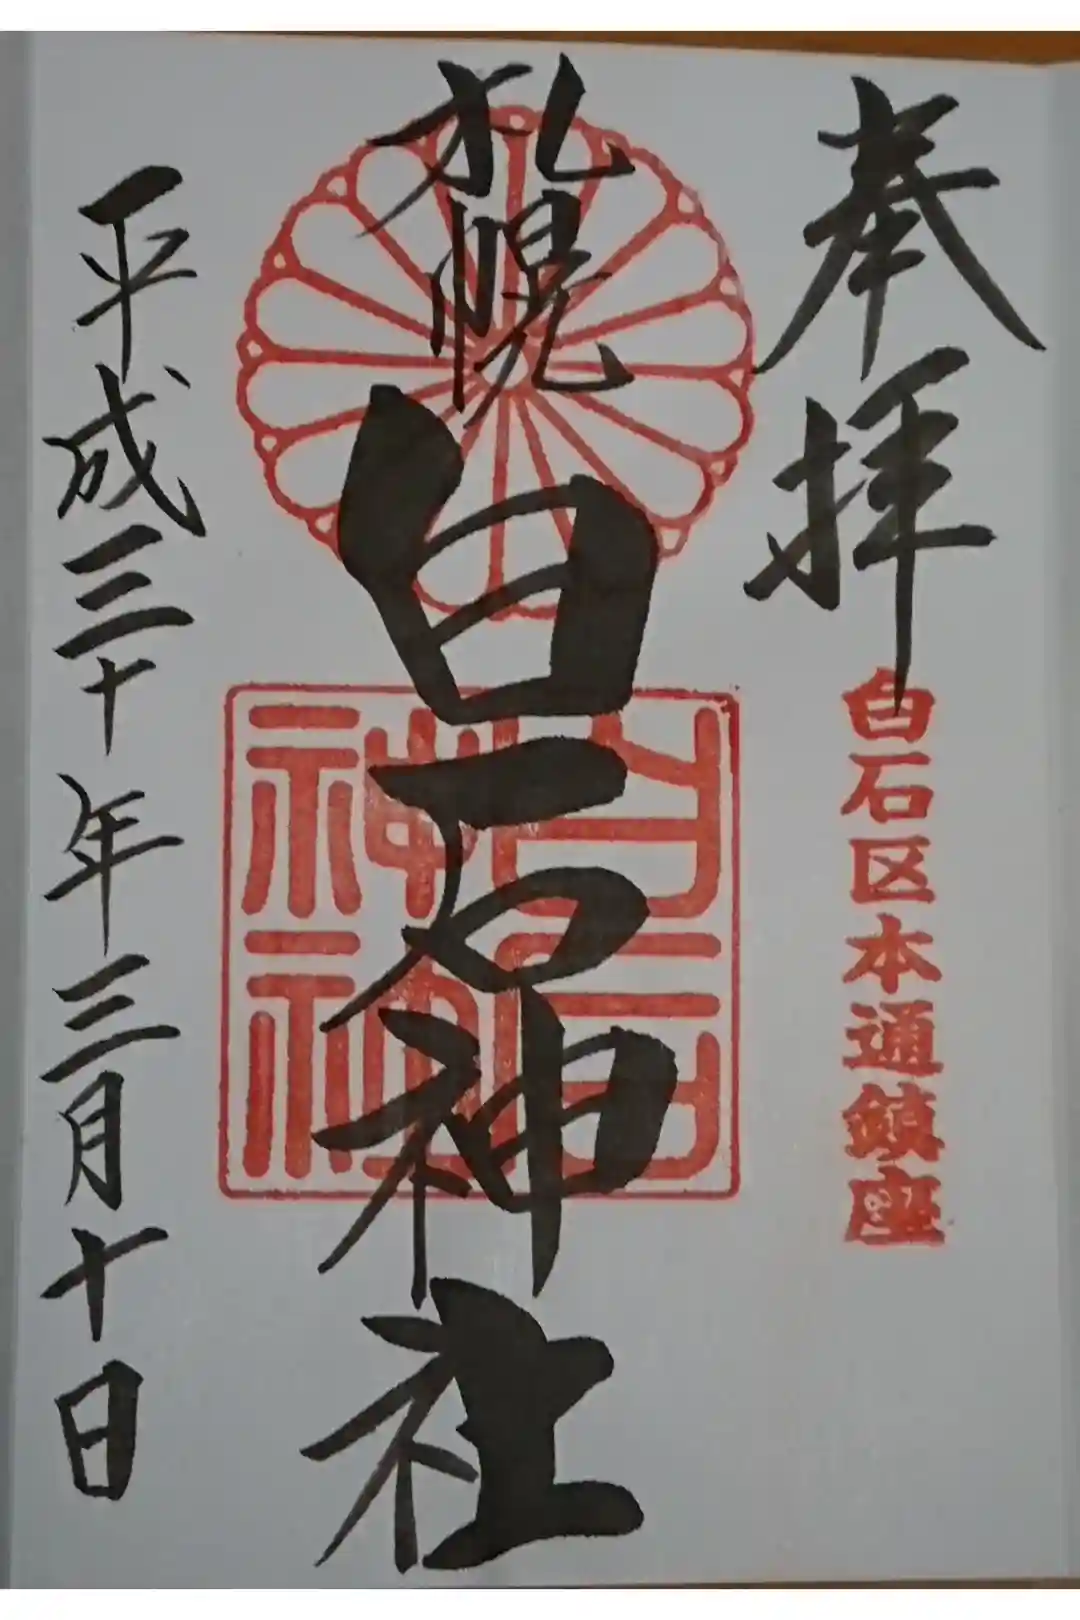 奉拝
白石区本通鎮座
札幌
白石神社
白石神社
平成三十年三月十日